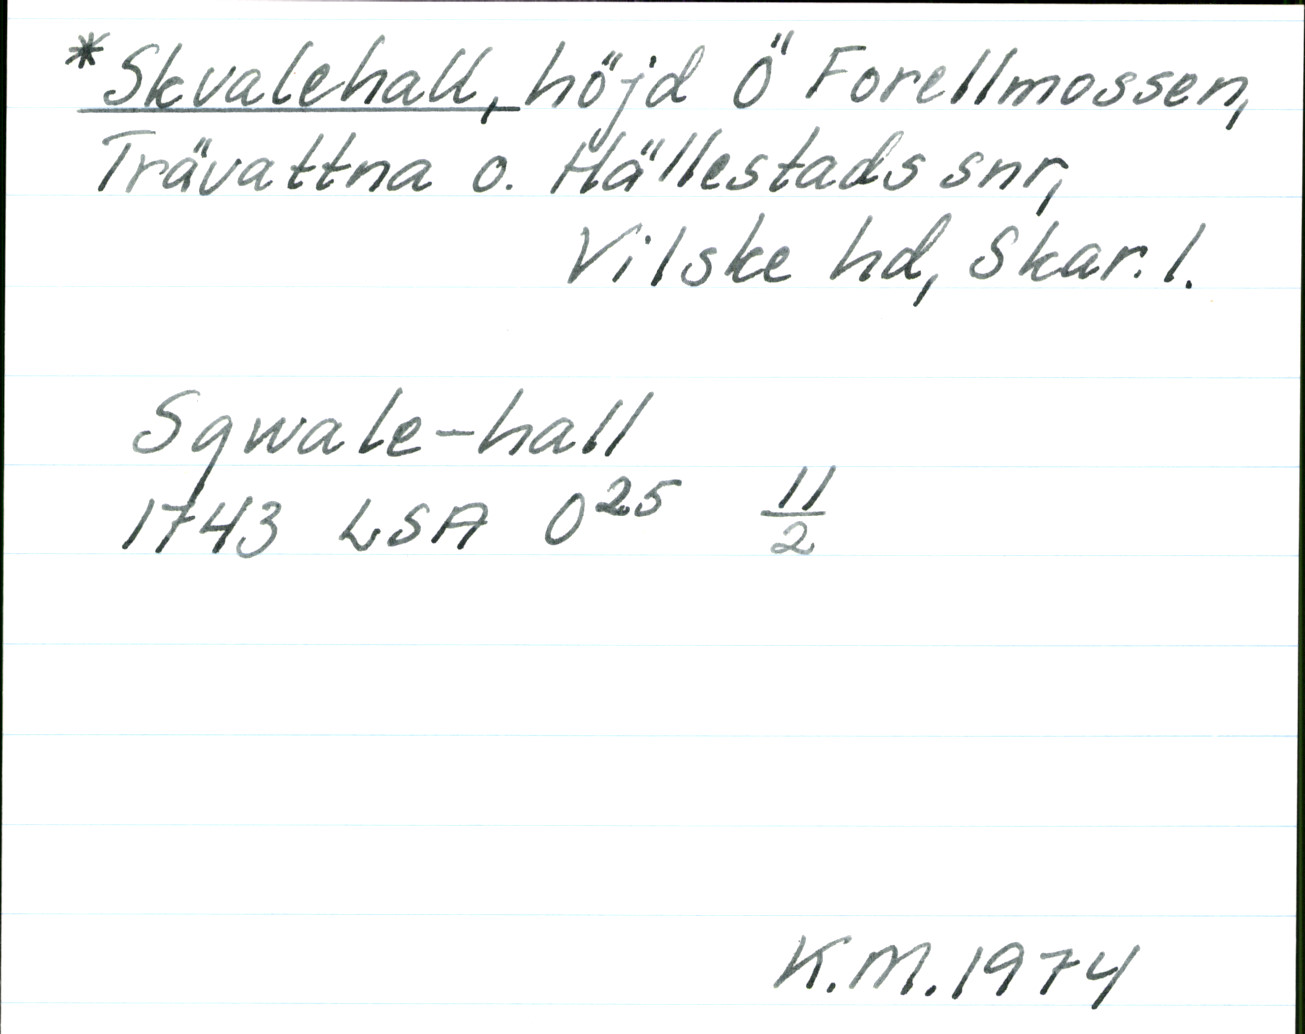 *Skvalehall, höjd Ö Forellmossen,
Trävattna o. Hällestads snr,
Vilske hd, Skar. l.
Sqwale-hall
1743 LSA O²⁵ 11/2
K.M. 1974